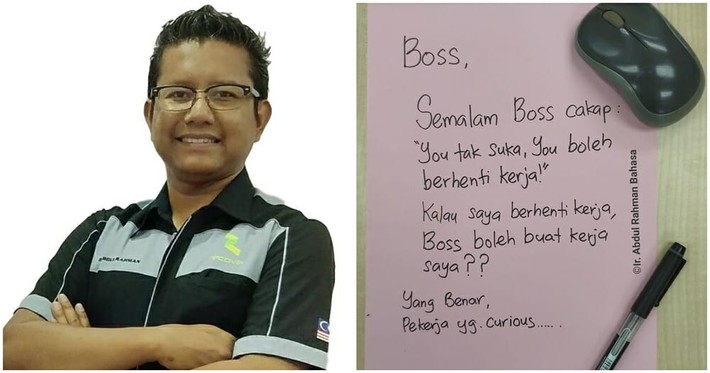 Boss,
Semalam Boss cakap :
"You tak suka, You boleh
berhenti kerja!"
Kalau saya berhenti kerja,
Boss boleh buat kerja
saya ??
Yang Benar,
Pekerja yg. curious......
©Ir. Abdul Rahman Bahasa